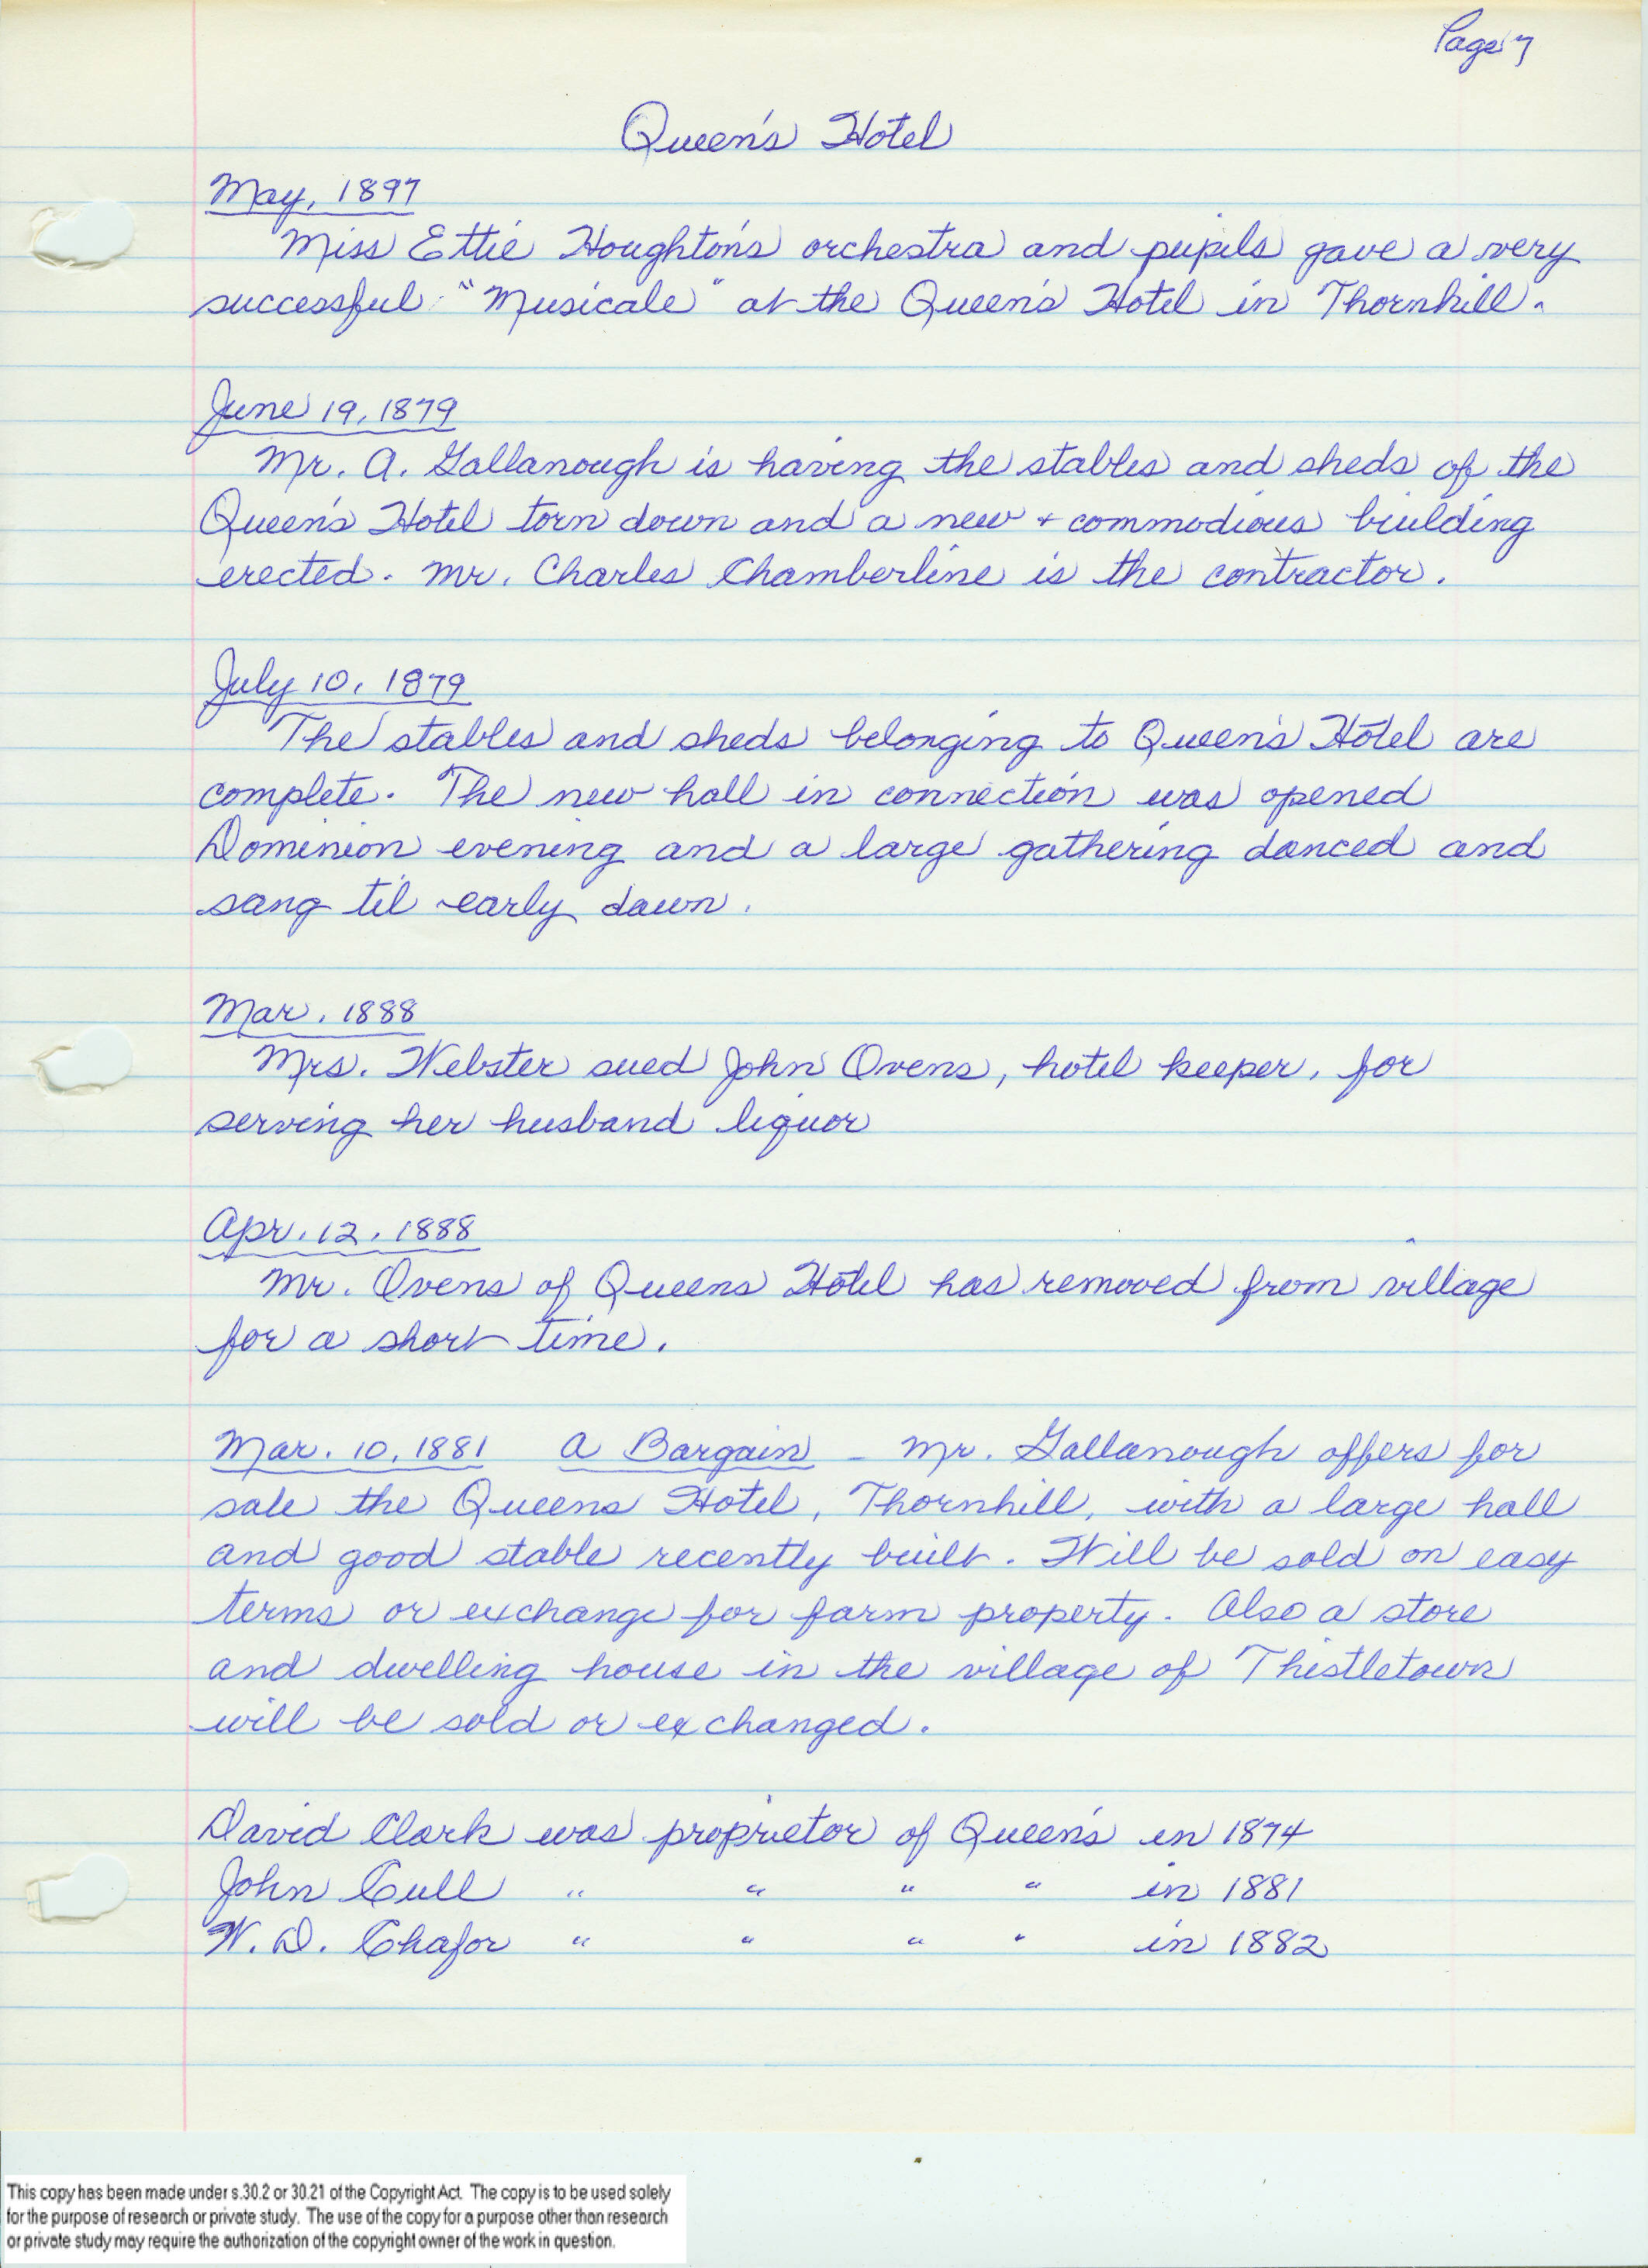 Page 7
Queen's Hotel
May, 1897
Miss Ettie Houghton's orchestra and pupils gave a very
successful "Musicale" at the Queen's Hotel in Thornhill.
June 19, 1879
Mr. A. Gallanough is having the stables and sheds of the
Queen's Hotel torn down and a new + commodious building
erected. Mr. Charles Chamberline is the contractor.
July 10, 1879
The stables and sheds belonging to Queen's Hotel are
complete. The new hall in connection was opened
Dominion evening and a large gathering danced and
sang til early dawn.
Mar. 1888
Mrs. Webster sued John Ovens, hotel keeper, for
serving her husband liquor
Apr. 12, 1888
Mr. Ovens of Queens Hotel has removed from village
for a short time.
Mar. 10, 1881 A Bargain - Mr. Gallanough offers for
sale the Queens Hotel, Thornhill, with a large hall
and good stable recently built. Will be sold on easy
terms or exchange for farm property. Also a store
and dwelling house in the village of Thistletown
will be sold or exchanged.
David Clark was proprietor of Queen's in 1874
John Cull " " " " in 1881
W. D. Chafor " " " " in 1882
This copy has been made under s.30.2 or 30.21 of the Copyright Act. The copy is to be used solely
for the purpose of research or private study. The use of the copy for a purpose other than research
or private study may require the authorization of the copyright owner of the work in question.